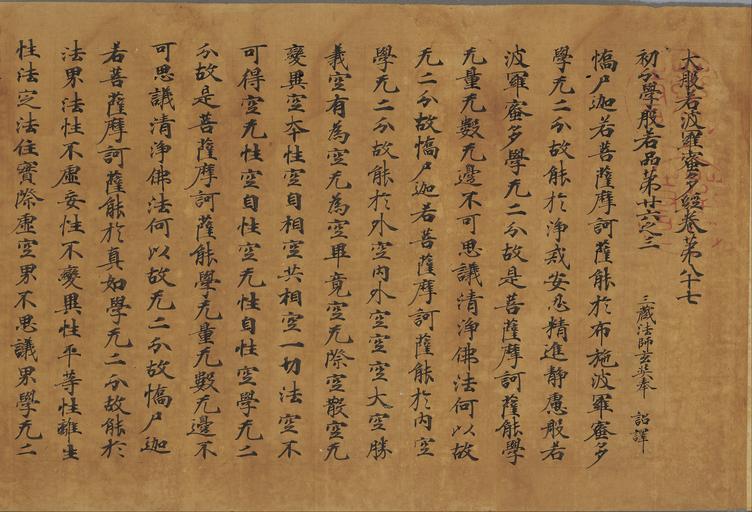 大般若波羅蜜多經卷第八十七
初分學般若品第廿六之三
三藏法師玄奘奉 詔譯
憍尸迦若菩薩摩訶薩能於布施波羅蜜多
學无二分故能於淨戒安忍精進靜慮般若
波羅蜜多學无二分故是菩薩摩訶薩能學
无量无數无邊不可思議清淨佛法何以故
无二分故憍尸迦若菩薩摩訶薩能於內空
學无二分故能於外空內外空空空大空勝
義空有為空无為空畢竟空无際空散空无
變異空本性空自相空共相空一切法空不
可得空无性空自性空无性自性空學无二
分故是菩薩摩訶薩能學无量无數无邊不
可思議清淨佛法何以故无二分故憍尸迦
若菩薩摩訶薩能於真如學无二分故能於
法界法性不虛妄性不變異性平等性離生
性法定法住實際虛空界不思議界學无二